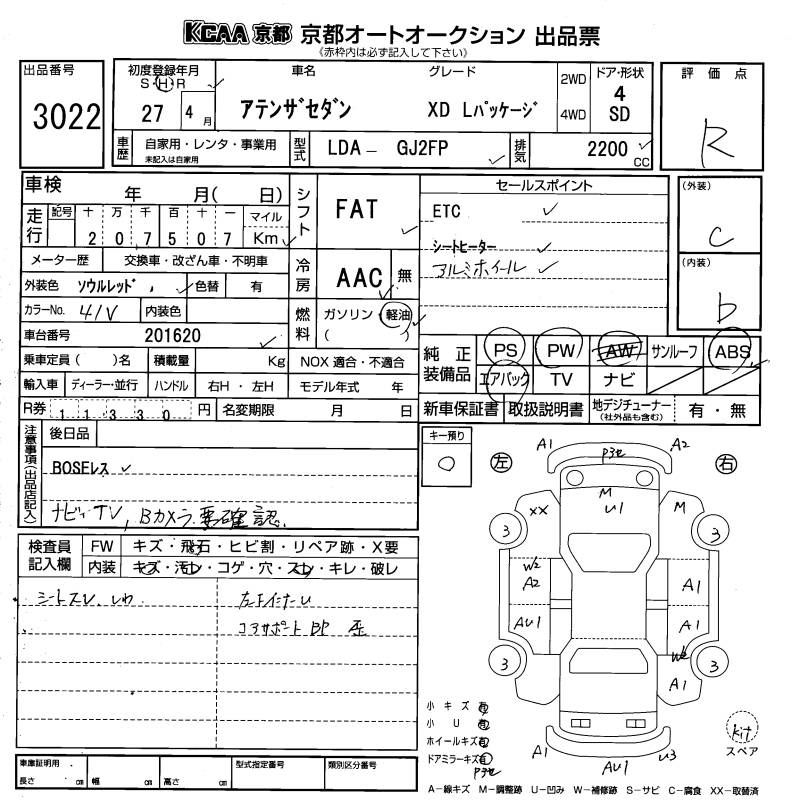 KCAA 京都 京都オートオークション 出品票
《赤枠内は必ず記入して下さい》
出品番号
3022
初度登録年月
S・H・R
27 4月
車名
アテンザセダン
グレード
XD Lパッケージ
2WD
4WD
ドア・形状
4
SD
評価点
R
車歴
自家用・レンタ・事業用
未記入は自家用
型式
LDA－ GJ2FP
排気
2200
CC
車検 年 月( 日)
走行
記号 十 万 千 百 十 一 マイル
2 0 7 5 0 7 Km
メーター歴 交換車・改ざん車・不明車
外装色 ソウルレッド 色替 有
カラーNo. 41V 内装色
車台番号 201620
乗車定員( )名 積載量 Kg NOX 適合・不適合
輸入車 ディーラー・並行 ハンドル 右H・左H モデル年式 年
R券 11330 円 名変期限 月 日
シフト
FAT
冷房
AAC 無
燃料
ガソリン・軽油
( )
セールスポイント
ETC
シートヒーター
アルミホイール
(外装)
C
(内装)
b
純正装備品
PS PW AW サンルーフ ABS
エアバック TV ナビ
新車保証書 取扱説明書 地デジチューナー
(社外品も含む) 有・無
注意事項(出品店記入)
後日品
BOSEレス
ナビ・TV, Bカメラ 要確認
キー預り
○
検査員記入欄
FW キズ・飛石・ヒビ割・リペア跡・X要
内装 キズ・汚レ・コゲ・穴・スレ・キレ・破レ
シートスレ、しわ
コアサポート BP
左 右
A1 A2
M
U1
XX M
3 3
W2
A2 A1
AU1 A1
3 3
A1
A1 AU1 U3
小キズ有
小U有
ホイールキズ有
ドアミラーキズ有
kit
スペア
A－線キズ M－調整跡 U－凹み W－補修跡 S－サビ C－腐食 XX－取替済
車庫証明用
長さ cm 幅 cm 高さ cm
型式指定番号
類別区分番号